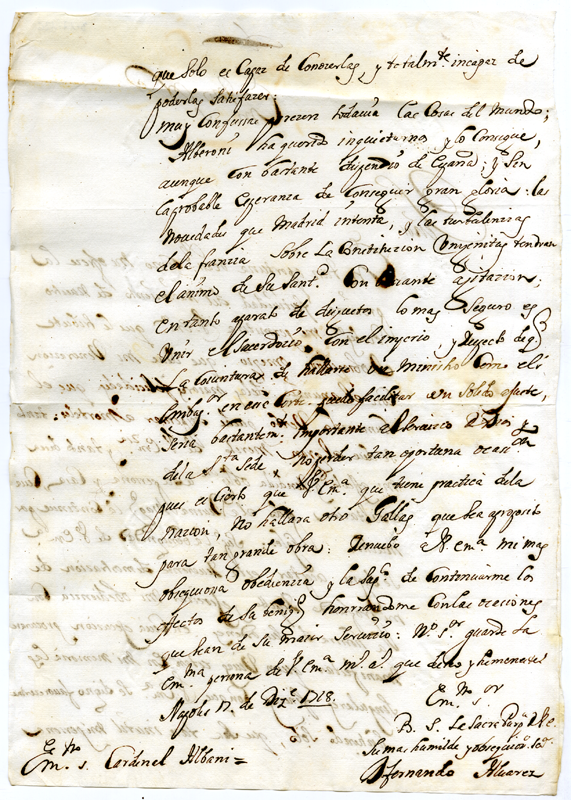 que solo es Capaz de Conozerlas, y totalm.te incapaz de
poderlas satisfazer.
muy Confussas parezen todavia las Cosas del Mundo;
Alberoni ha querido inquietarnos y lo Consigue,
aunque con bastante dispendio de España: y sin
la probable Esperanza de Conseguir gran gloria: las
Novedades que Madrid intenta, y las turbulenzias
de la francia sobre La Constitucion Unigenitus tendran
el animo de Su Sant.d Con bastante agitacion;
en tanto aparato de disgustos lo mas Seguro es
Unir el Sacerdocio con el imperio, y respecto de q.e
La Coyuntura de hallarse un Ministro Como el s.r
Emb.or en esse Corte puede facilitar un Solido ajuste,
Seria bastantem.te importante al servicio de Dios y
de la S.ta Sede no perder tan oportuna ocasion
pues es Cierto que V. Em.a que tiene practica de la
Nacion, No hallara otro Gallas que sea aproposito
para tan grande obra: Renuebo a V. Em.a mi mas
obsequiosa obedienzia y la sup.ca de Continuarme los
efectos de su benig.d honrrandome Con las ocasiones
que sean de su maior Servizio: N.o S.or guarde la
Em.ma persona de V. Em.a m.s a.s que deseo y he menester
Napoles 17. de Diz.e 1718.
E.mo S.or
B. S. L. Sacra Purp.a de V. E.
Su mas humilde y obsequioso ser.or
Fernando Alvarez
E.mo S. Cardenal Albani =